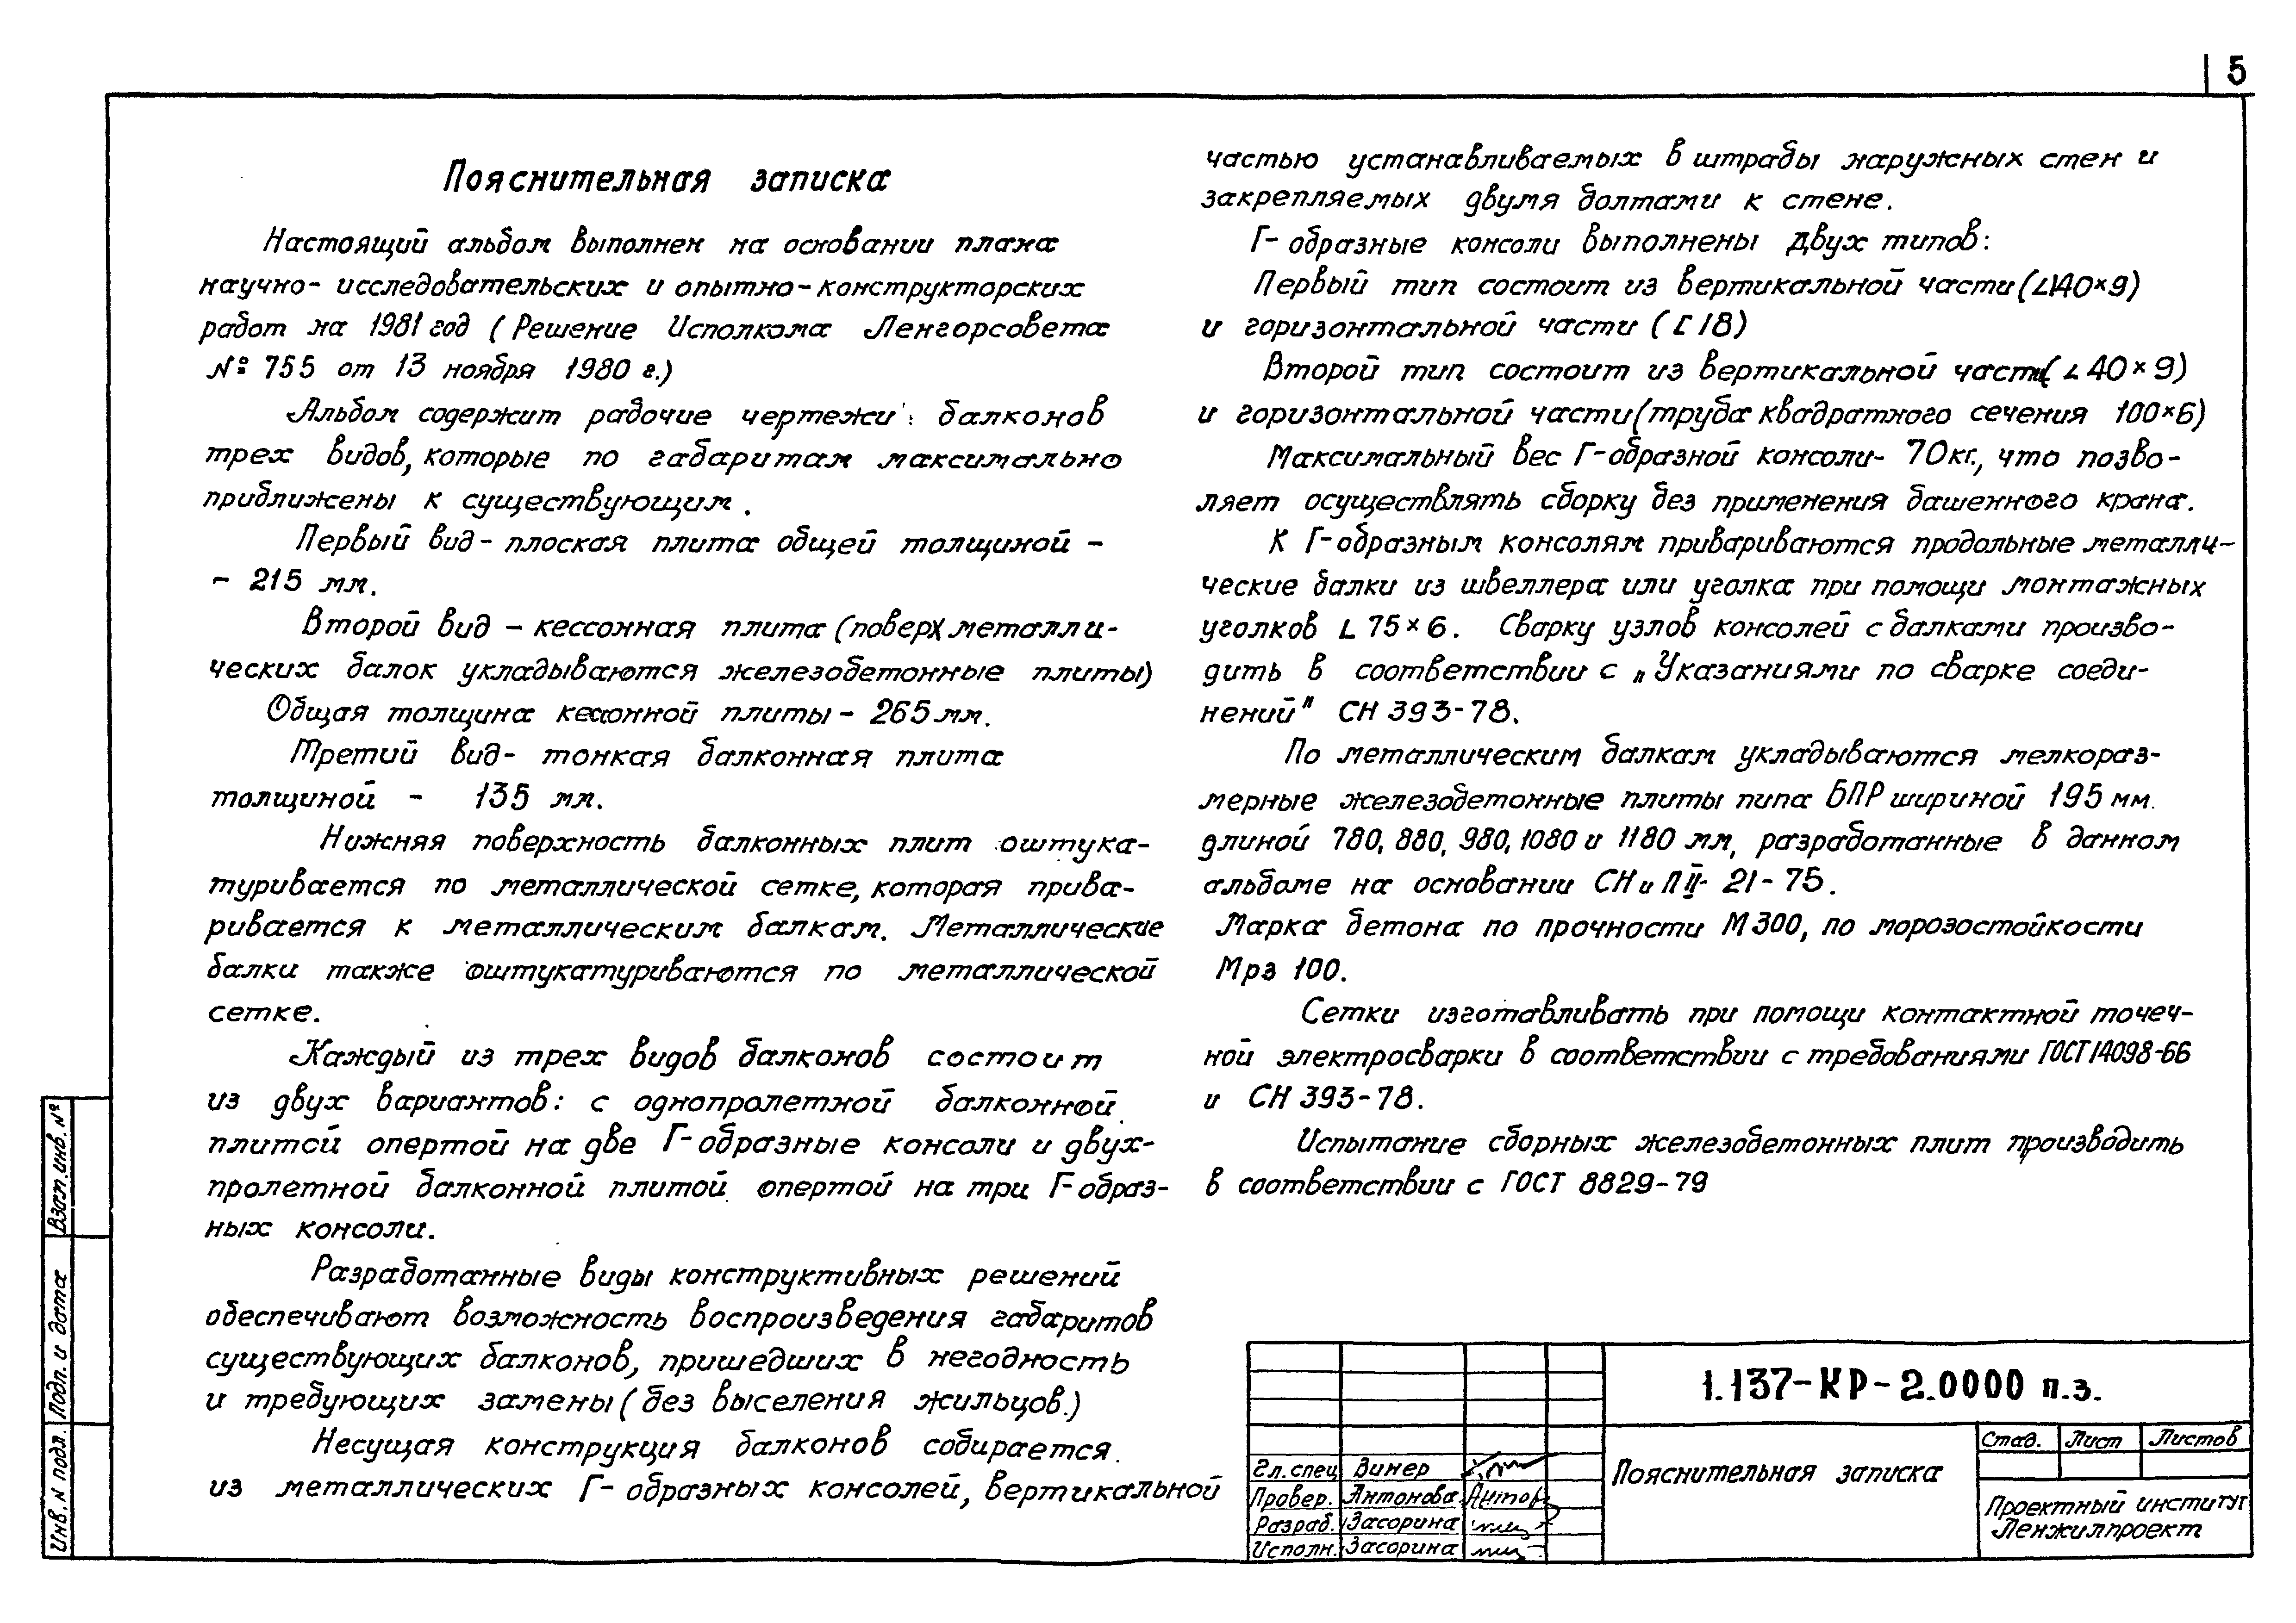 5
Пояснительная записка
Настоящий альбом выполнен на основании плана
научно- исследовательских и опытно-конструкторских
работ на 1981 год (Решение Исполкома Ленгорсовета
№ 755 от 13 ноября 1980 г.)
Альбом содержит рабочие чертежи: балконов
трех видов, которые по габаритам максимально
приближены к существующим.
Первый вид - плоская плита общей толщиной -
- 215 мм.
Второй вид - кессонная плита (поверх металли-
ческих балок укладываются железобетонные плиты)
Общая толщина кессонной плиты - 265 мм.
Третий вид - тонкая балконная плита
толщиной - 135 мм.
Нижняя поверхность балконных плит оштука-
туривается по металлической сетке, которая прива-
ривается к металлическим балкам. Металлические
балки также оштукатуриваются по металлической
сетке.
Каждый из трех видов балконов состоит
из двух вариантов: с однопролетной балконной
плитой опертой на две Г-образные консоли и двух-
пролетной балконной плитой опертой на три Г-образ-
ных консоли.
Разработанные виды конструктивных решений
обеспечивают возможность воспроизведения габаритов
существующих балконов, пришедших в негодность
и требующих замены (без выселения жильцов.)
Несущая конструкция балконов собирается
из металлических Г- образных консолей, вертикальной
частью устанавливаемых в штрабы наружных стен и
закрепляемых двумя болтами к стене.
Г- образные консоли выполнены двух типов:
Первый тип состоит из вертикальной части (L140×9)
и горизонтальной части ([ 18)
Второй тип состоит из вертикальной части (L 40×9)
и горизонтальной части (труба квадратного сечения 100×6)
Максимальный вес Г-образной консоли- 70кг., что позво-
ляет осуществлять сборку без применения башенного крана.
К Г-образным консолям привариваются продольные металли-
ческие балки из швеллера или уголка при помощи монтажных
уголков L 75×6. Сварку узлов консолей с балками произво-
дить в соответствии с „Указаниями по сварке соеди-
нений" СН 393-78.
По металлическим балкам укладываются мелкораз-
мерные железобетонные плиты типа БПР шириной 195 мм.
длиной 780, 880, 980, 1080 и 1180 мм, разработанные в данном
альбоме на основании СНиП II- 21-75.
Марка бетона по прочности М300, по морозостойкости
Мрз 100.
Сетки изготавливать при помощи контактной точеч-
ной электросварки в соответствии с требованиями ГОСТ 14098-66
и СН 393-78.
Испытание сборных железобетонных плит производить
в соответствии с ГОСТ 8829-79
Взам. инв. №
Подп. и дата
Инв. N подл.
1.137-КР-2.0000 п.з.
Гл.спец Винер
Провер. Антонова
Разраб. Засорина
Исполн. Засорина
Пояснительная записка
Стад. Лист Листов
Проектный институт
Ленжилпроект